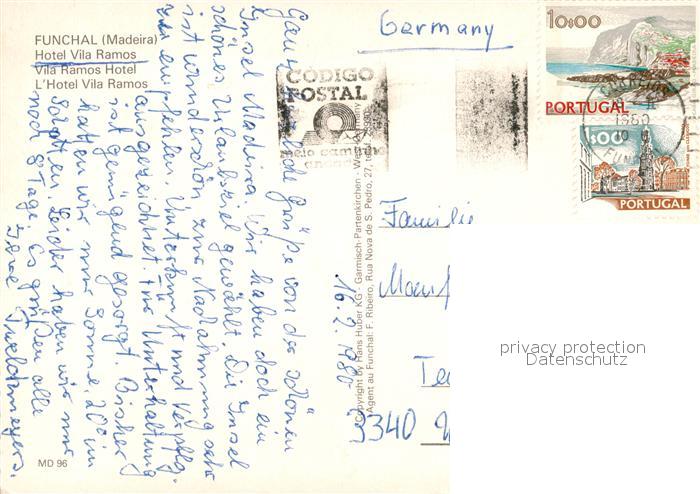 FUNCHAL (Madeira)
Hotel Vila Ramos
Vila Ramos Hotel
L'Hotel Vila Ramos
Germany
10$00
PORTUGAL
$00
PORTUGAL
CORREIOS
1980
FUN
CÓDIGO
POSTAL
meio caminho
andado
Ganz liebe Grüße von der schönen
Insel Madeira. Wir haben doch ein
schönes Urlaubsziel gewählt. Die Insel
ist wunderschön zur Nachahmung sehr
zu empfehlen. Unterkunft und Verpflg.
ausgezeichnet. Für Unterhaltung
ist genügend gesorgt. Bisher
hatten wir nur Sonne, 20° im
Schatten. Leider haben wir nur
noch 8 Tage. Es grüßen alle
16.2.1980
Copyright by Hans Huber KG - Garmisch-Partenkirchen
Agent au Funchal: F. Ribeiro, Rua Nova de S. Pedro, 27, 1º
Familie
3340
MD 96
privacy protection
Datenschutz